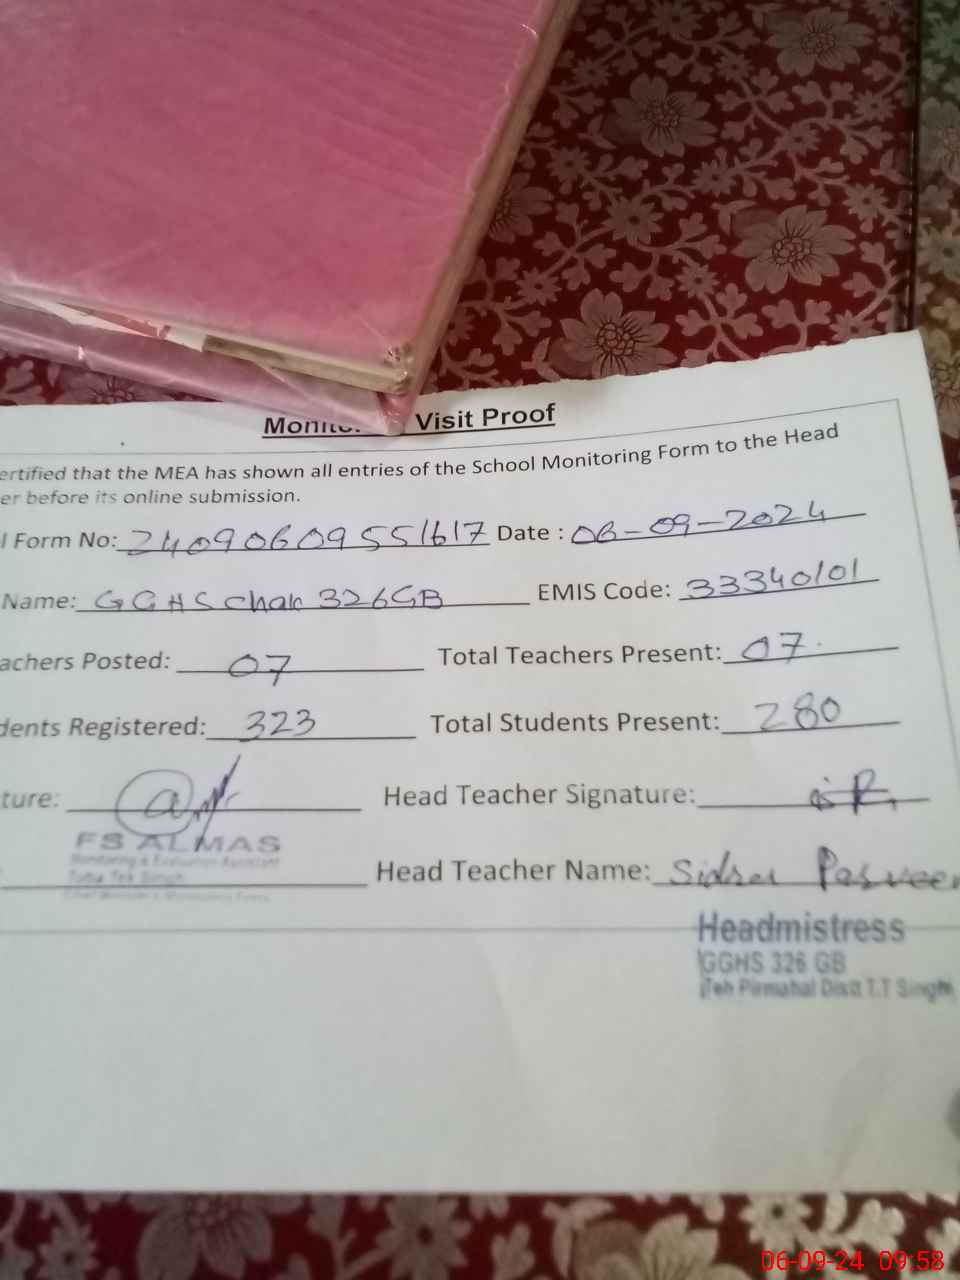 Monito Visit Proof
ertified that the MEA has shown all entries of the School Monitoring Form to the Head
er before its online submission.
l Form No: 24090609551617 Date : 06-09-2024
Name: GGHS Chak 326GB EMIS Code: 33340101
achers Posted: 07 Total Teachers Present: 07
dents Registered: 323 Total Students Present: 280
ture: Head Teacher Signature:
FS ALMAS
Monitoring & Evaluation Assistant
Toba Tek Singh
Head Teacher Name: Sidra Parveen
Headmistress
GGHS 326 GB
Teh Pirmahal Distt T.T Singh
06-09-24 09:58